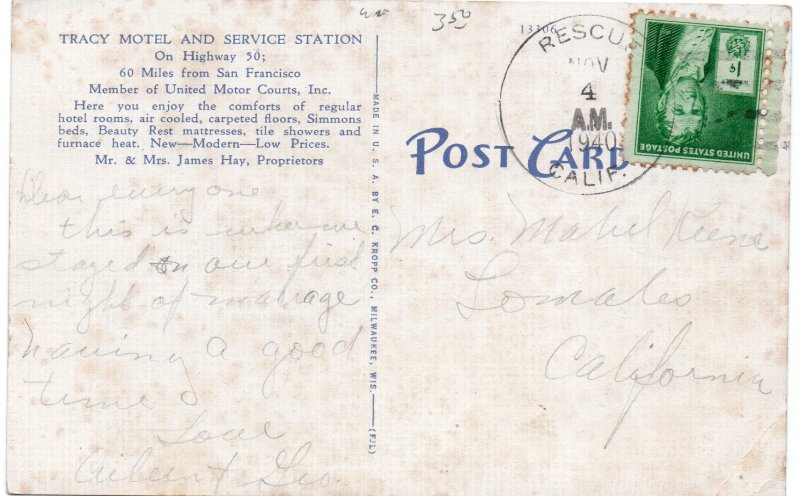 TRACY MOTEL AND SERVICE STATION
On Highway 50;
60 Miles from San Francisco
Member of United Motor Courts, Inc.
Here you enjoy the comforts of regular
hotel rooms, air cooled, carpeted floors, Simmons
beds, Beauty Rest mattresses, tile showers and
furnace heat. New—Modern—Low Prices.
Mr. & Mrs. James Hay, Proprietors
Dear everyone
this is where we
stayed on our first
night of marage
having a good
time
Love
Aileen + Leo.
MADE IN U. S. A. BY E. C. KROPP CO., MILWAUKEE, WIS. (FJL)
350
13306
POST CARD
RESCUE
NOV
4
A.M.
1940
CALIF.
UNITED STATES POSTAGE
1¢
Mrs. Mabel Keene
Lomales
California